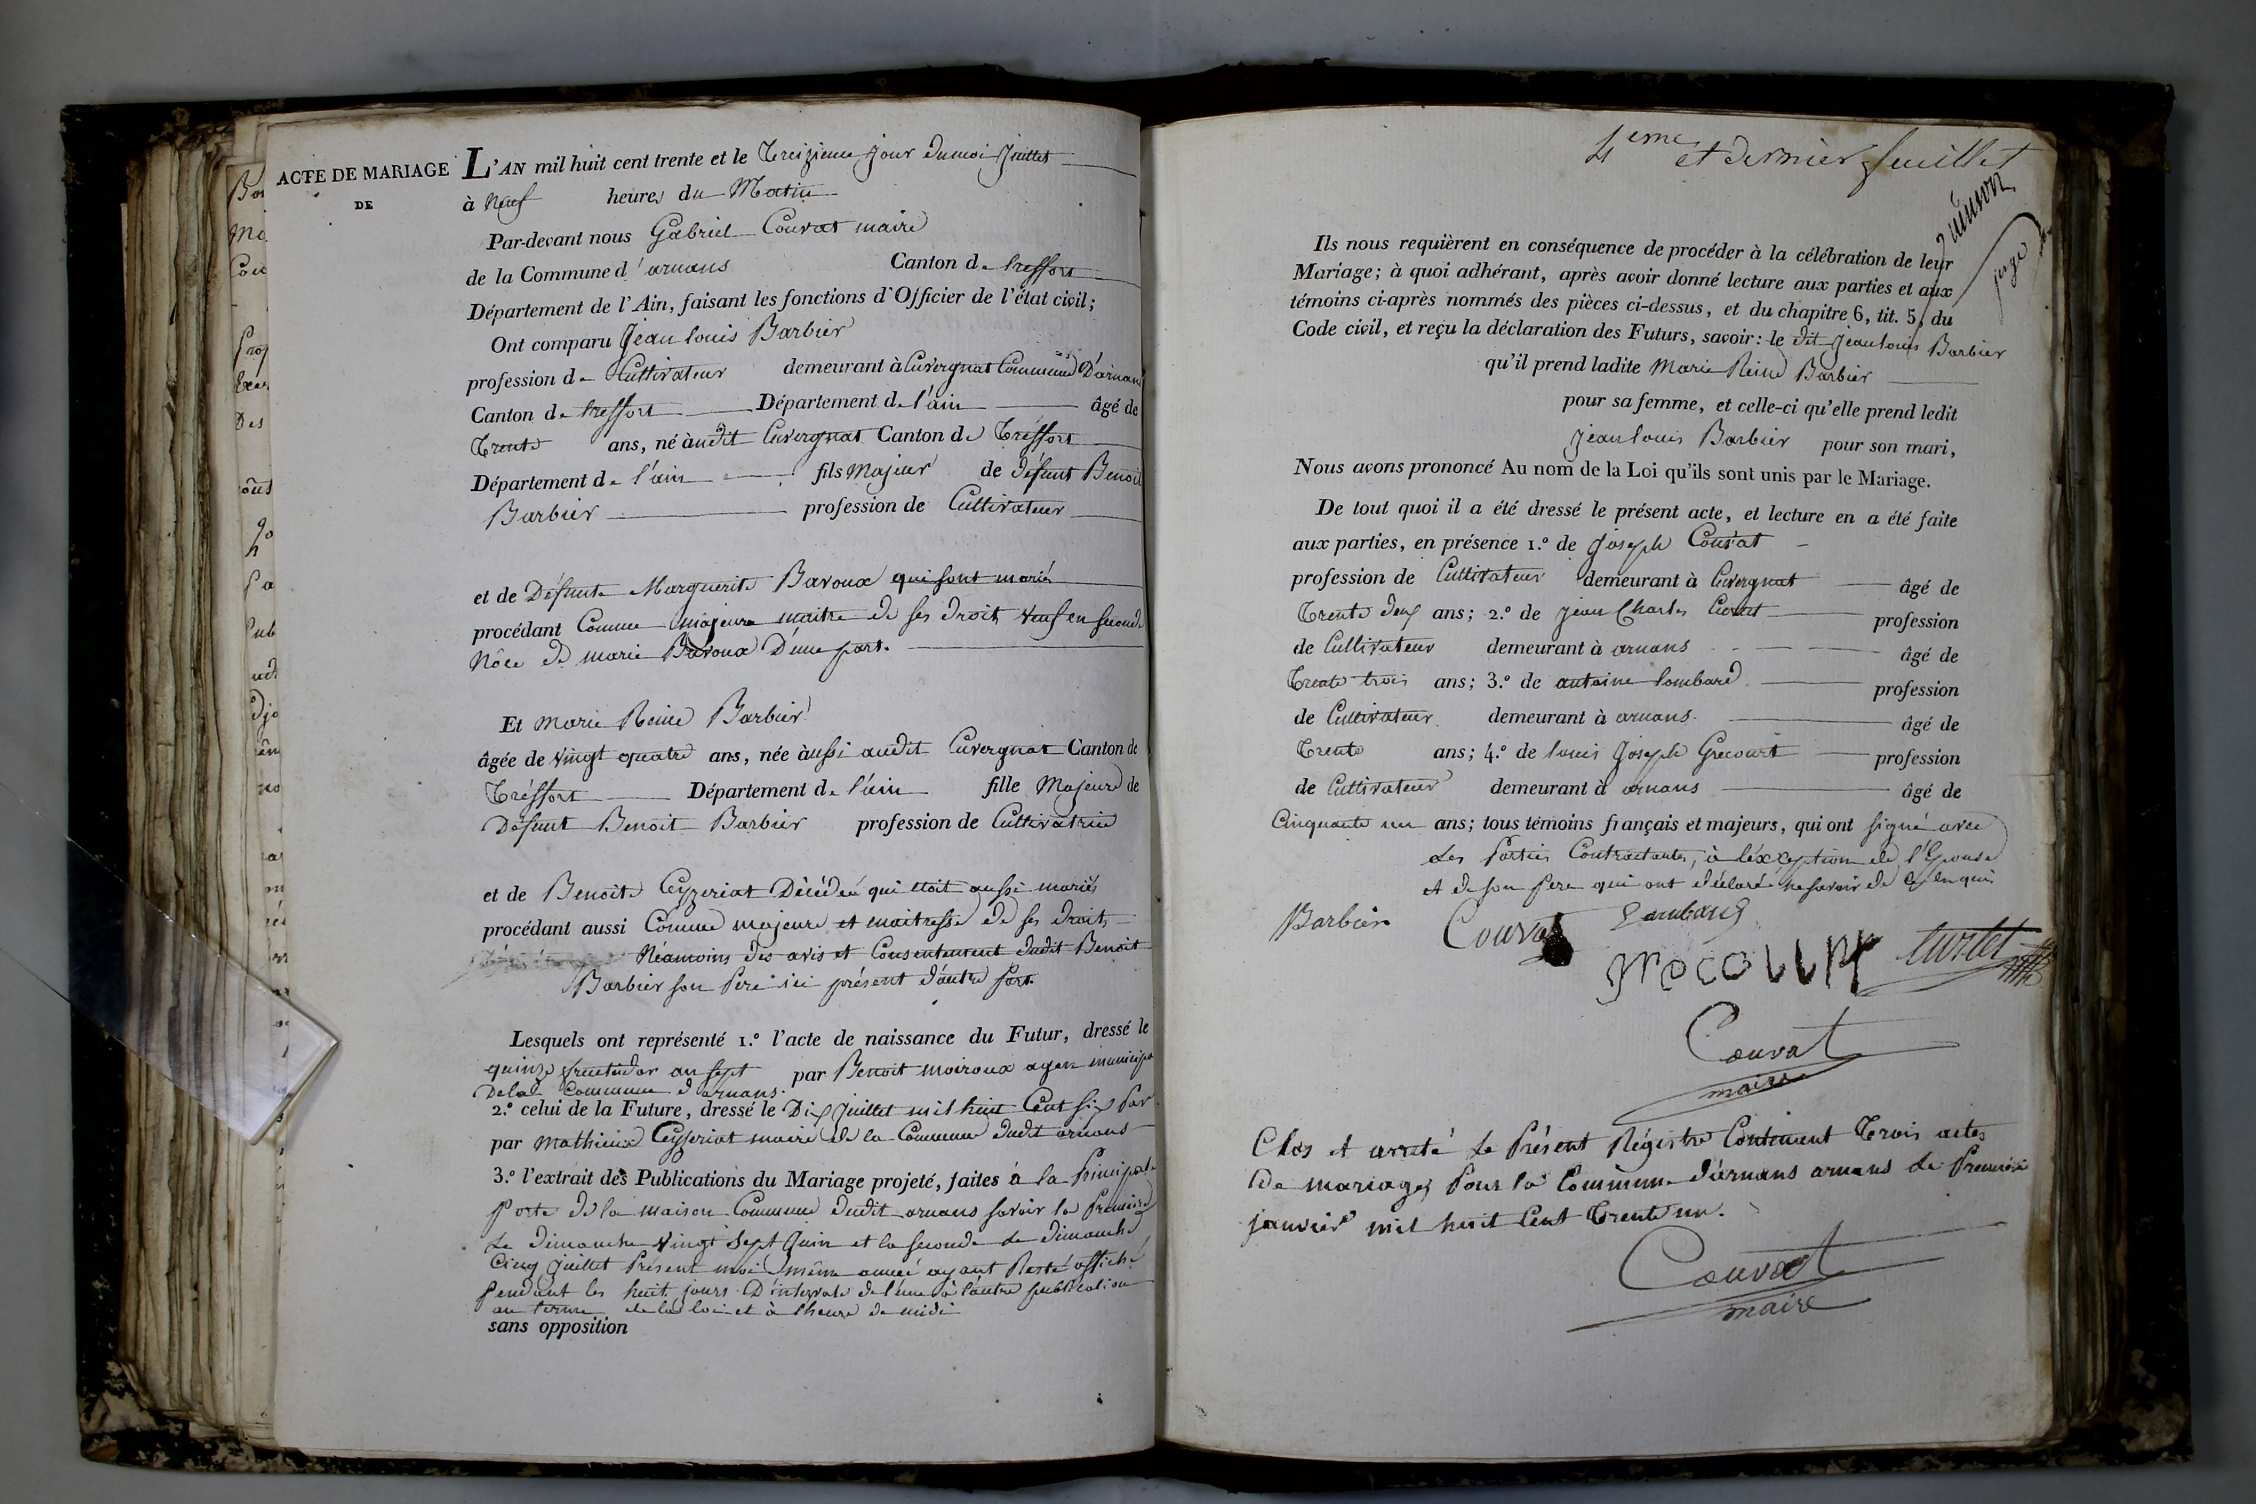 ACTE DE MARIAGE
DE
L'AN mil huit cent trente et le Treizieme jour du moi Juillet
à Neuf heures du Matin
Par-devant nous Gabriel Couvat maire
de la Commune d'arnans Canton de treffort
Département de l'Ain, faisant les fonctions d'Officier de l'état civil;
Ont comparu Jean louis Barbier
profession de Cultivateur demeurant à Cuvergnat Commune D'arnans
Canton de treffort Département de l'ain âgé de
Trente ans, né àudit Cuvergnat Canton de Treffort
Département de l'ain fils Majeur de défunt Benoit
Barbier profession de Cultivateur
et de Défunte Marguerite Bavoux qui sont mariés
procédant Comme majeure maitre de ses droit, veuf en seconde
Nôce de marie Bavoux D'une part.
Et Marie Reine Barbier
âgée de vingt quatre ans, née àussi audit Cuvergnat Canton de
Tréffort Département de l'ain fille Majeure de
Défunt Benoit Barbier profession de Cultivatrice
et de Benoite Ceyzeriat Décédeé qui etoit aussi mariés
procédant aussi Comme majeure et maitresse de ses droits,
Néamoins des avis et Consentement dudit Benoit
Barbier son Pere ici présent d'autre part.
Lesquels ont représenté 1.º l'acte de naissance du Futur, dressé le
quinze fructidor an sept par Benoit moiroux agen municipa
De la Commune d'arnans.
2.º celui de la Future, dressé le Dix Juillet mil huit Cent six Par
par Mathieu Ceyseriat maire de la Commune dudit arnans
3.º l'extrait des Publications du Mariage projeté, faites à la Principale
Porte de la maison Commune dudit arnans savoir la Premiere
Le dimanche vingt sept Juin et la seconde le dimanche
Cinq Juillet Présent moi même année ayant Resté affiché
Pendant les huit jours D'intervale de l'une à l'autre publication
au terme de la loi et à l'heure de midi
sans opposition
4eme et dernier feuillet
juge
Ils nous requièrent en conséquence de procéder à la célébration de leur
Mariage; à quoi adhérant, après avoir donné lecture aux parties et aux
témoins ci-après nommés des pièces ci-dessus, et du chapitre 6, tit. 5, du
Code civil, et reçu la déclaration des Futurs, savoir: le dit Jean louis Barbier
qu'il prend ladite Marie Reine Barbier
pour sa femme, et celle-ci qu'elle prend ledit
Jean louis Barbier pour son mari,
Nous avons prononcé Au nom de la Loi qu'ils sont unis par le Mariage.
De tout quoi il a été dressé le présent acte, et lecture en a été faite
aux parties, en présence 1.º de Joseph Couvat
profession de Cultivateur demeurant à Cuvergnat âgé de
Trente deux ans; 2.º de Jean Charles profession
de Cultivateur demeurant à arnans âgé de
Trente trois ans; 3.º de antoine lombard profession
de Cultivateur demeurant à arnans. âgé de
Trente ans; 4.º de louis Joseph Grecourt profession
de Cultivateur demeurant à arnans âgé de
Cinquante un ans; tous témoins français et majeurs, qui ont signé avec
Les Parties Contractantes, à l'exception de l'Epouse
et de son Pere qui ont déclaré ne savoir de ce enquis
Barbier Couvat Lombard
grecourt Curlet
Couvat
maire
Clos et arreté le Présent Régistre Contenant Trois actes
De mariages Pour la Commune d'arnans arnans le Premier
janvier mil huit Cent Trente un.
Couvat
maire